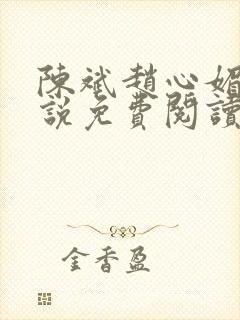 陳斌趙心媚
說免費閱讀
金香盈